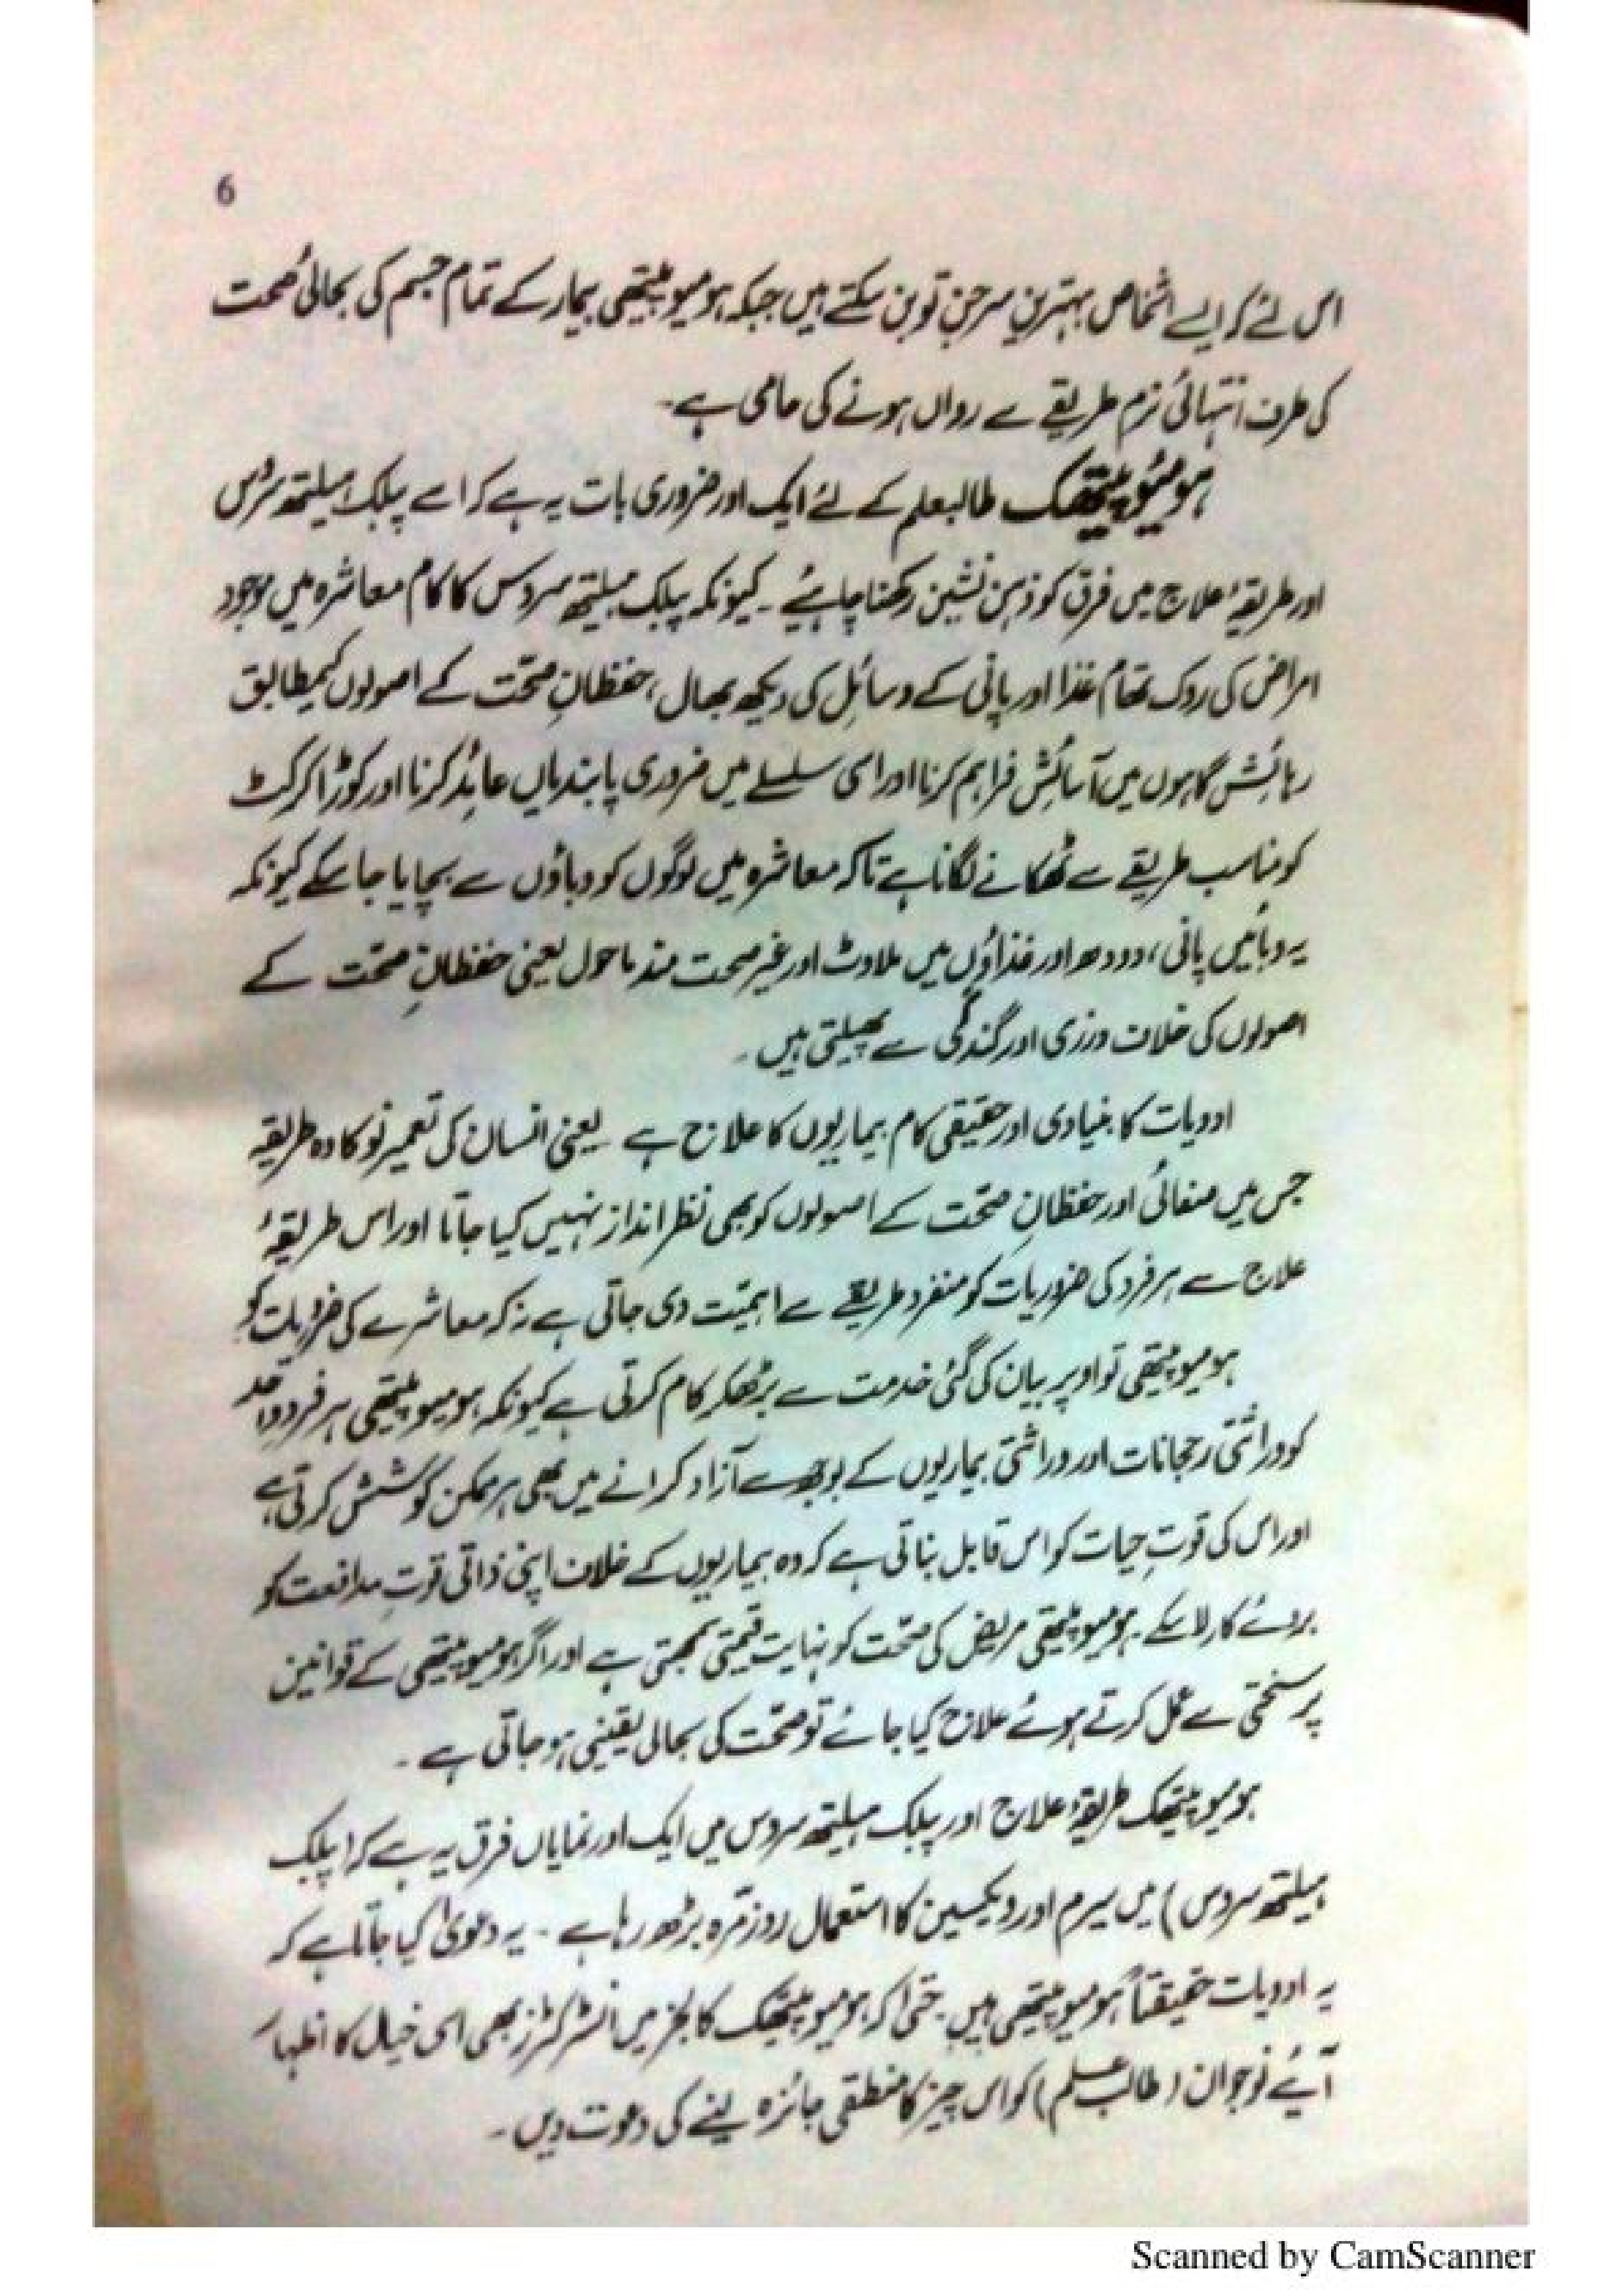 6
اس لئے کہ ایسے اشخاص بہترین سرجن تو بن سکتے ہیں جبکہ ہومیوپیتھی بیمار کے تمام جسم کی بحالیٔ صحت
کی طرف انتہائی نرم طریقے سے رواں ہونے کی حامی ہے۔
ہومیوپیتھک طالبعلم کے لئے ایک اور ضروری بات یہ ہے کہ اسے پبلک ہیلتھ سروس
اور طریقۂ علاج میں فرق کو ذہن نشین رکھنا چاہئے۔ کیونکہ پبلک ہیلتھ سروس کا کام معاشرہ میں موجود
امراض کی روک تھام غذا اور پانی کے وسائل کی دیکھ بھال، حفظانِ صحت کے اصولوں کیمطابق
رہائش گاہوں میں آسائش فراہم کرنا اور اسی سلسلے میں ضروری پابندیاں عائد کرنا اور کوڑا کرکٹ
کو مناسب طریقے سے ٹھکانے لگانا ہے تاکہ معاشرہ میں لوگوں کو وباؤں سے بچایا جا سکے کیونکہ
یہ وبائیں پانی، دودھ اور غذاؤں میں ملاوٹ اور غیر صحت مند ماحول یعنی حفظانِ صحت کے
اصولوں کی خلاف ورزی اور گندگی سے پھیلتی ہیں۔
ادویات کا بنیادی اور حقیقی کام بیماریوں کا علاج ہے۔ یعنی انسان کی تعمیر نو کا وہ طریقہ
جس میں صفائی اور حفظانِ صحت کے اصولوں کو بھی نظر انداز نہیں کیا جاتا اور اس طریقۂ
علاج سے ہر فرد کی ضروریات کو منفرد طریقے سے اہمیت دی جاتی ہے نہ کہ معاشرے کی ضروریات کو
ہومیوپیتھی تو اوپر بیان کی گئی خدمت سے بڑھکر کام کرتی ہے کیونکہ ہومیوپیتھی ہر فرد واحد
کو وراثتی رجحانات اور وراثتی بیماریوں کے بوجھ سے آزاد کرانے میں بھی ہر ممکن کوشش کرتی ہے
اور اس کی قوتِ حیات کو اس قابل بناتی ہے کہ وہ بیماریوں کے خلاف اپنی ذاتی قوتِ مدافعت کو
بروئے کار لا سکے۔ ہومیوپیتھی مریض کی صحت کو نہایت قیمتی سمجھتی ہے اور اگر ہومیوپیتھی کے قوانین
پر سختی سے عمل کرتے ہوئے علاج کیا جائے تو صحت کی بحالی یقینی ہو جاتی ہے۔
ہومیوپیتھک طریقۂ علاج اور پبلک ہیلتھ سروس میں ایک اور نمایاں فرق یہ ہے کہ (پبلک
ہیلتھ سروس) میں سیرم اور ویکسین کا استعمال روز مرہ بڑھ رہا ہے۔ یہ دعویٰ کیا جاتا ہے کہ
یہ ادویات حقیقتاً ہومیوپیتھی ہیں۔ حتیٰ کہ ہومیوپیتھک کالجز میں انسٹرکٹرز بھی اسی خیال کا اظہار
آیئے نوجوان (طالب علم) کو اس چیز کا منطقی جائزہ لینے کی دعوت دیں۔
Scanned by CamScanner